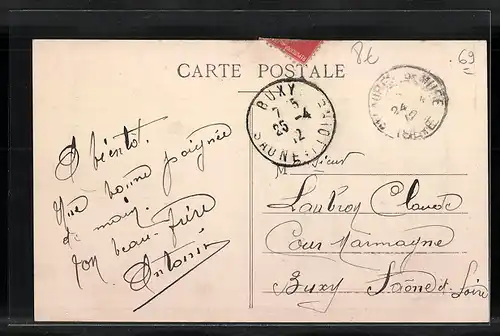 8e
69
CARTE POSTALE
BUXY
7 15
25 -4
12
SAONE-ET-LOIRE
24
12
ISERE
A bientôt.
Une bonne poignée
de main
Ton beau-frère
Antonin
Monsieur
Claude
Cour Marmagne
Buxy Saône et Loire